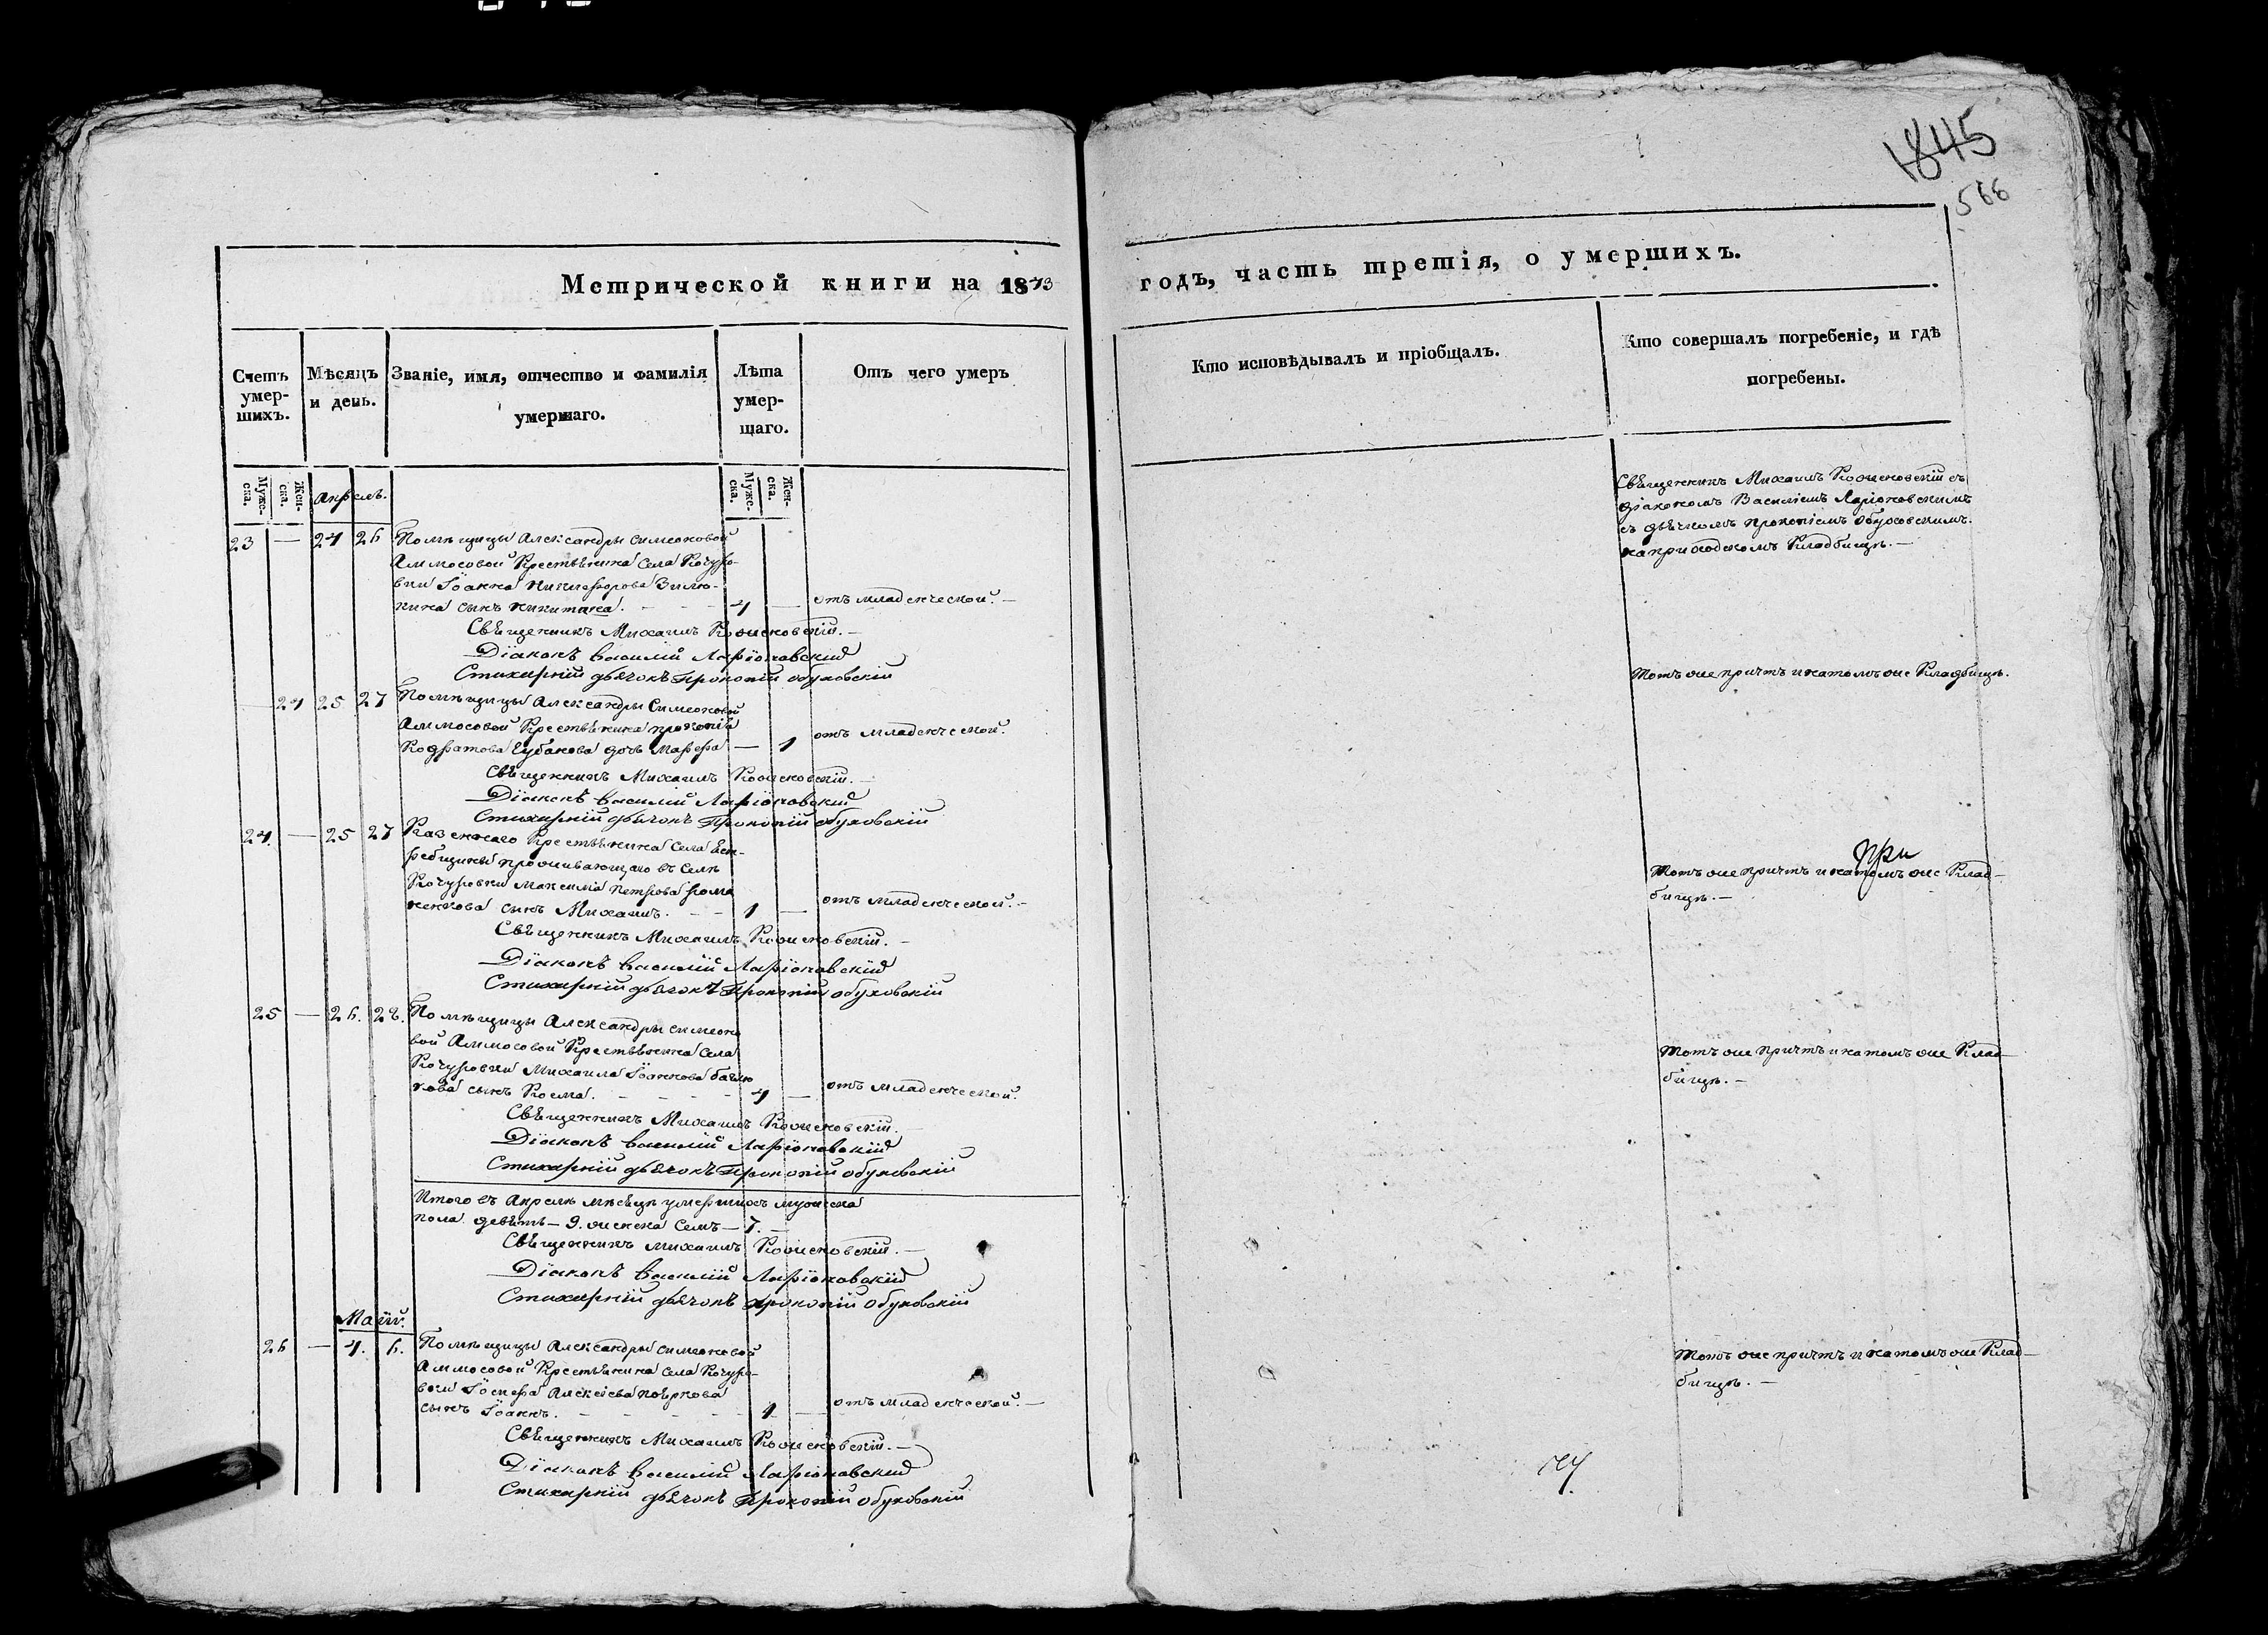 1845
566
Метрической книги на 1843
годъ, часть третія, о умершихъ.
Счетъ умер-шихъ.
Мѣсяцъ и день.
Званіе, имя, отчество и фамилія умершаго.
Лѣта умер-щаго.
Отъ чего умеръ
Кто исповѣдывалъ и пріобщалъ.
Кто совершалъ погребеніе, и гдѣ погребены.
Муже-ска.
Жен-ска.
Муже-ска.
Жен-ска.
Апрель.
23 — 24 26
Помѣщицы Александры Симеоновой
Аммосовой Крестьянина Села Кочуро-
вки Іоанна Никифорова
сынъ Никитака. 4 — отъ младенческой. —
Священникъ Михаилъ
Діаконъ Василій Ларіоновский
Стихарній дьячокъ Прокопій Обуховскій
Священникъ Михаилъ съ
діакономъ Василіемъ Ларіоновскимъ
съ дьячкомъ Прокопіемъ Обуховскимъ.
на приходскомъ Кладбищѣ. —
— 24 25 27
Помѣщицы Александры Симеоновой
Аммосовой Крестьянина Прокопія
Кодратова Губанова дочь Марфа — 1 отъ младенческой.
Священникъ Михаилъ
Діаконъ Василій Ларіоновский
Стихарній дьячокъ Прокопій Обуховскій
Тотъ же причтъ и на томъ же Кладбищѣ.
24. — 25 27
Казеннаго Крестьянина Села
проживающаго въ Селѣ
Кочуровки Максима Петрова Рома
ненкова сынъ Михаилъ. 1 — отъ младенческой. —
Священникъ Михаилъ
Діаконъ Василій Ларіоновский
Стихарній дьячокъ Прокопій Обуховскій
при
Тотъ же причтъ и на томъ же Клад-
бищѣ. —
25 — 26. 28.
Помѣщицы Александры Симеоно
вой Аммосовой Крестьянина Села
Кочуровки Михаила Іоаннова
сынъ Косма. 4 — отъ младенческой.
Священникъ Михаилъ
Діаконъ Василій Ларіоновский
Стихарній дьячокъ Прокопій Обуховскій
Тотъ же причтъ и на томъ же Клад-
бищѣ. —
Итого въ Апрелѣ мѣсяцѣ умершихъ мужеска
пола девять — 9. женска Семъ — 7. —
Священникъ Михаилъ
Діаконъ Василій Ларіоновский
Стихарній дьячокъ Прокопій Обуховскій
Маій.
26 — 4. 6.
Помѣщицы Александры Симеоновой
Аммосовой Крестьянина Села Кочуро-
вки Іосифа Алексіева
сынъ Іоаннъ. 1 — отъ младенческой. —
Священникъ Михаилъ
Діаконъ Василій Ларіоновский
Стихарній дьячокъ Прокопій Обуховскій
Тотъ же причтъ и на томъ же Клад-
бищѣ. —